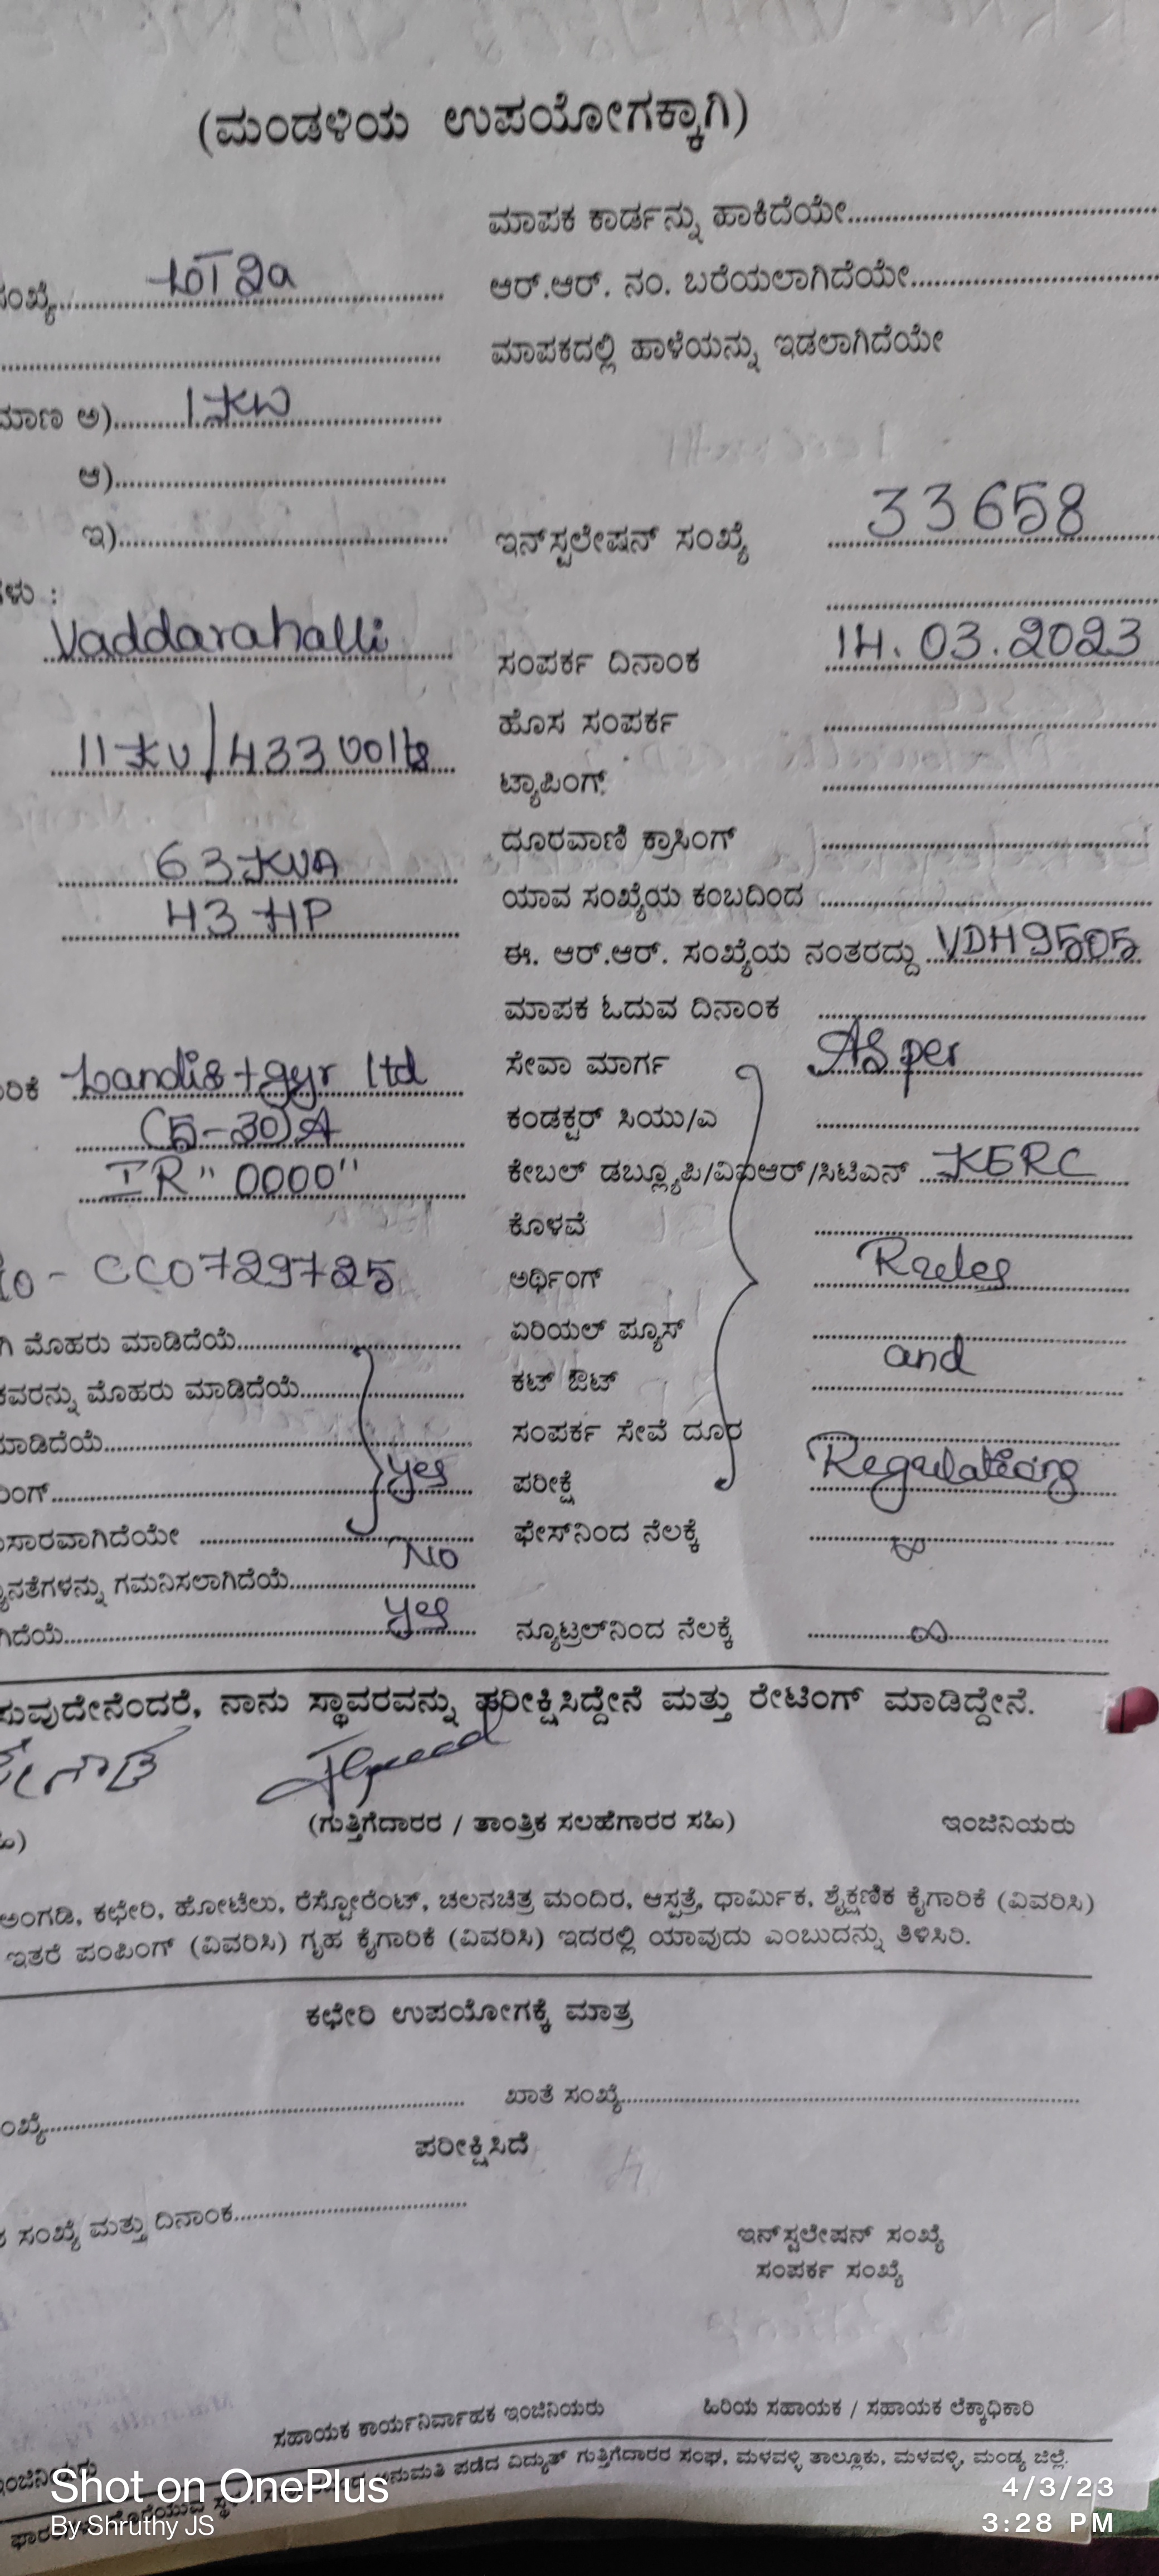 (ಮಂಡಳಿಯ ಉಪಯೋಗಕ್ಕಾಗಿ)
ಮಾಪಕ ಕಾರ್ಡನ್ನು ಹಾಕಿದೆಯೇ
ಸಂಖ್ಯೆ LT2a
ಆರ್.ಆರ್. ನಂ. ಬರೆಯಲಾಗಿದೆಯೇ
ಮಾಪಕದಲ್ಲಿ ಹಾಳೆಯನ್ನು ಇಡಲಾಗಿದೆಯೇ
ಮಾಣ ಅ) 1KW
ಆ)
ಇ)
ಇನ್‌ಸ್ಟಲೇಷನ್ ಸಂಖ್ಯೆ 33658
ಗಳು :
Vaddarahalli
ಸಂಪರ್ಕ ದಿನಾಂಕ 14.03.2023
ಹೊಸ ಸಂಪರ್ಕ
11KV/433 Volts
ಟ್ಯಾಪಿಂಗ್
ದೂರವಾಣಿ ಕ್ರಾಸಿಂಗ್
63KVA
ಯಾವ ಸಂಖ್ಯೆಯ ಕಂಬದಿಂದ
43 HP
ಈ. ಆರ್.ಆರ್. ಸಂಖ್ಯೆಯ ನಂತರದ್ದು VDH9505
ಮಾಪಕ ಓದುವ ದಿನಾಂಕ
ರಿಕೆ Landis+gyr ltd
ಸೇವಾ ಮಾರ್ಗ As per
(5-30)A
ಕಂಡಕ್ಟರ್ ಸಿಯು/ಎ
IR "0000"
ಕೇಬಲ್ ಡಬ್ಲ್ಯೂಪಿ/ವಿಐಆರ್/ಸಿಟಿಎನ್ KERC
ಕೊಳವೆ
- CC0729725
ಅರ್ಥಿಂಗ್ Rules
ಗಿ ಮೊಹರು ಮಾಡಿದೆಯೆ
ಏರಿಯಲ್ ಪ್ಯೂಸ್
and
ಕವರನ್ನು ಮೊಹರು ಮಾಡಿದೆಯೆ
ಕಟ್ ಔಟ್
ಮಾಡಿದೆಯೆ
ಸಂಪರ್ಕ ಸೇವೆ ದೂರ
ಂಗ್ yes
ಪರೀಕ್ಷೆ Regulations
ುಸಾರವಾಗಿದೆಯೇ
ಫೇಸ್‌ನಿಂದ ನೆಲಕ್ಕೆ ∞
ನ್ಯೂನತೆಗಳನ್ನು ಗಮನಿಸಲಾಗಿದೆಯೆ No
ಗಿದೆಯೆ yes
ನ್ಯೂಟ್ರಲ್‌ನಿಂದ ನೆಲಕ್ಕೆ ∞
ಸುವುದೇನೆಂದರೆ, ನಾನು ಸ್ಥಾವರವನ್ನು ಪರೀಕ್ಷಿಸಿದ್ದೇನೆ ಮತ್ತು ರೇಟಿಂಗ್ ಮಾಡಿದ್ದೇನೆ.
(ಗುತ್ತಿಗೆದಾರರ / ತಾಂತ್ರಿಕ ಸಲಹೆಗಾರರ ಸಹಿ) ಇಂಜಿನಿಯರು
ಅಂಗಡಿ, ಕಛೇರಿ, ಹೋಟೆಲು, ರೆಸ್ಟೋರೆಂಟ್, ಚಲನಚಿತ್ರ ಮಂದಿರ, ಆಸ್ಪತ್ರೆ, ಧಾರ್ಮಿಕ, ಶೈಕ್ಷಣಿಕ ಕೈಗಾರಿಕೆ (ವಿವರಿಸಿ)
ಇತರೆ ಪಂಪಿಂಗ್ (ವಿವರಿಸಿ) ಗೃಹ ಕೈಗಾರಿಕೆ (ವಿವರಿಸಿ) ಇದರಲ್ಲಿ ಯಾವುದು ಎಂಬುದನ್ನು ತಿಳಿಸಿರಿ.
ಕಛೇರಿ ಉಪಯೋಗಕ್ಕೆ ಮಾತ್ರ
ಸಂಖ್ಯೆ ಖಾತೆ ಸಂಖ್ಯೆ
ಪರೀಕ್ಷಿಸಿದೆ
ಸಂಖ್ಯೆ ಮತ್ತು ದಿನಾಂಕ
ಇನ್‌ಸ್ಟಲೇಷನ್ ಸಂಖ್ಯೆ
ಸಂಪರ್ಕ ಸಂಖ್ಯೆ
ಸಹಾಯಕ ಕಾರ್ಯನಿರ್ವಾಹಕ ಇಂಜಿನಿಯರು ಹಿರಿಯ ಸಹಾಯಕ / ಸಹಾಯಕ ಲೆಕ್ಕಾಧಿಕಾರಿ
ಇಂಜಿನಿಯರು
ಅನುಮತಿ ಪಡೆದ ವಿದ್ಯುತ್ ಗುತ್ತಿಗೆದಾರರ ಸಂಘ, ಮಳವಳ್ಳಿ ತಾಲ್ಲೂಕು, ಮಳವಳ್ಳಿ, ಮಂಡ್ಯ ಜಿಲ್ಲೆ.
Shot on OnePlus
By Shruthy JS
4/3/23
3:28 PM